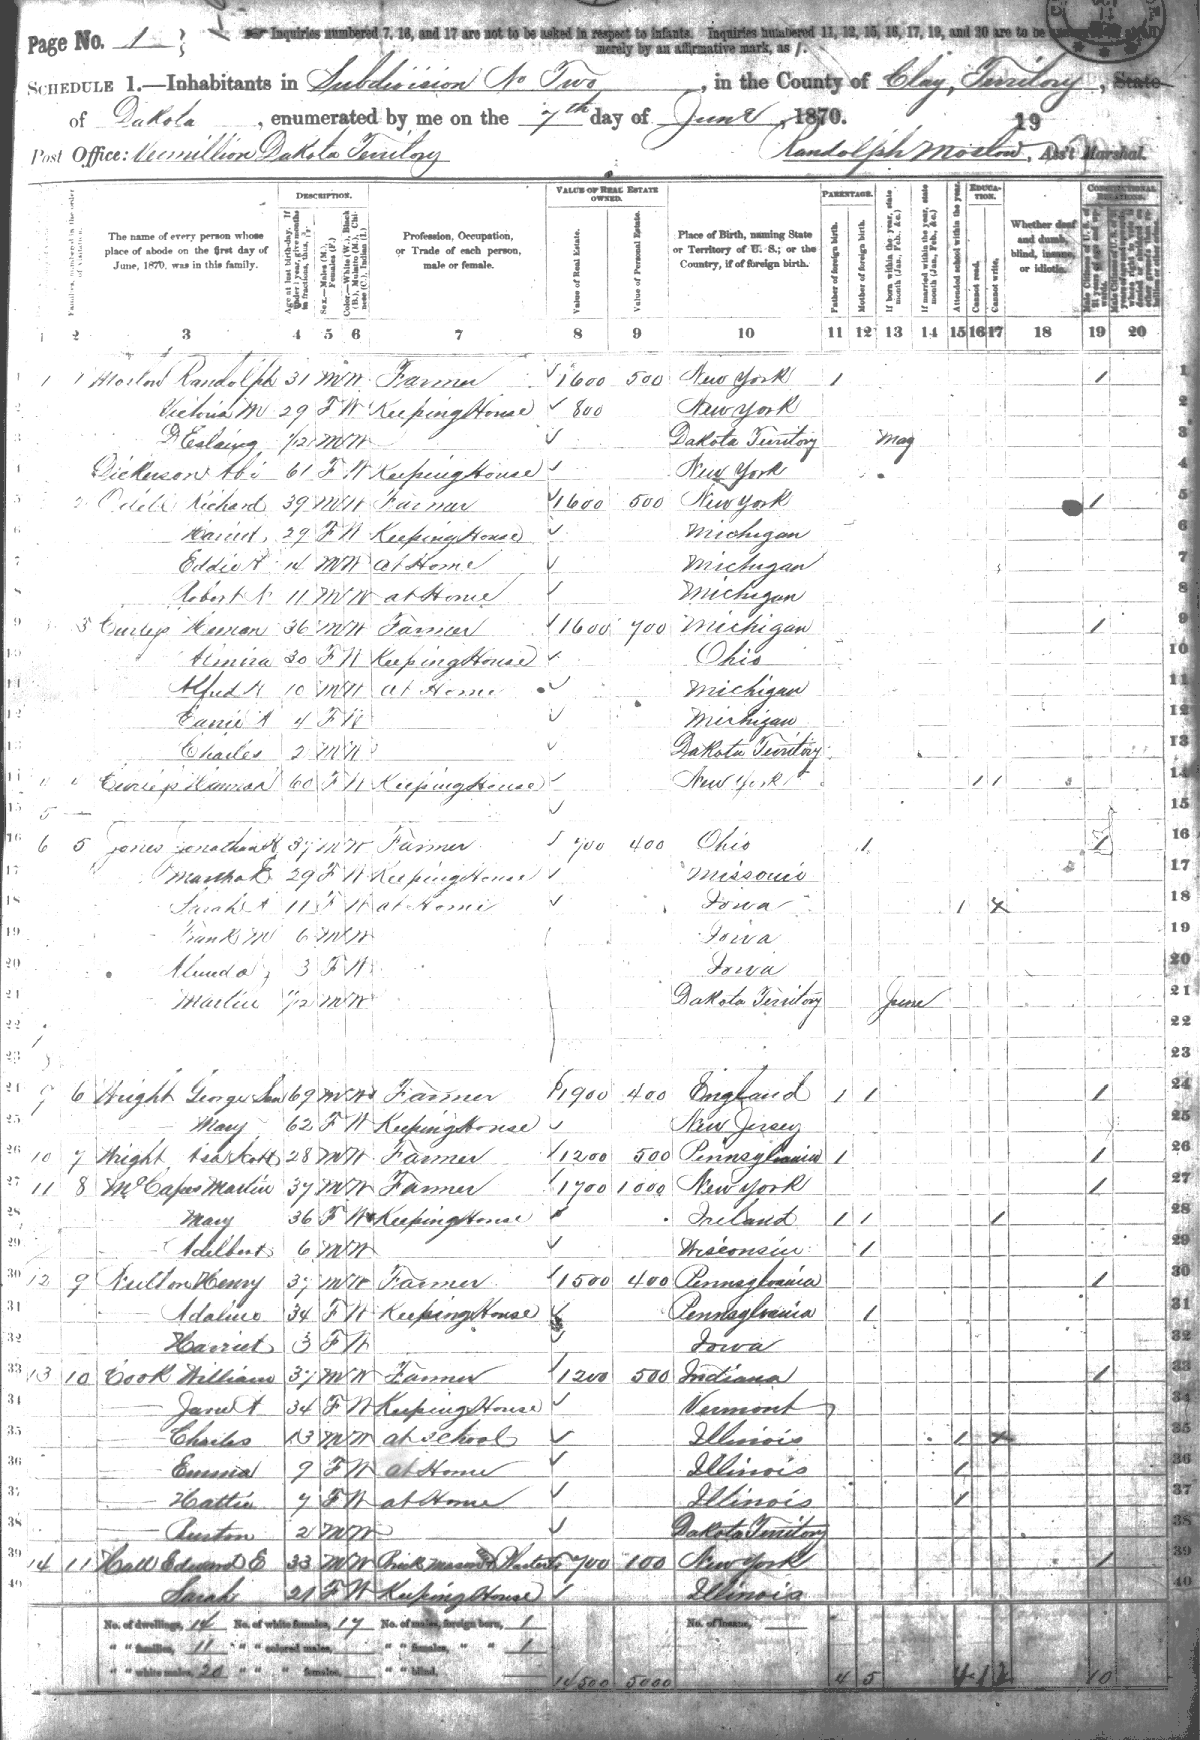 Page No. 1
Inquiries numbered 7, 16, and 17 are not to be asked in respect to infants. Inquiries numbered 11, 12, 15, 16, 17, 19, and 20 are to be
merely by an affirmative mark, as /.
SCHEDULE 1.—Inhabitants in Subdivision No Two, in the County of Clay, Territory, State
of Dakota, enumerated by me on the 7th day of June, 1870.
19
Post Office: Vermillion Dakota Territory Randolph Moslow, Ass't Marshal.
DESCRIPTION. VALUE OF REAL ESTATE OWNED. PARENTAGE. EDUCATION. CONSTITUTIONAL RELATIONS.
The name of every person whose place of abode on the first day of June, 1870, was in this family.
Profession, Occupation, or Trade of each person, male or female.
Value of Real Estate. Value of Personal Estate.
Place of Birth, naming State or Territory of U. S.; or the Country, if of foreign birth.
Father of foreign birth. Mother of foreign birth. If born within the year, state month (Jan., Feb., &c.) If married within the year, state month (Jan., Feb., &c.) Attended school within the year. Cannot read. Cannot write.
Whether deaf and dumb, blind, insane, or idiotic.
1 2 3 4 5 6 7 8 9 10 11 12 13 14 15 16 17 18 19 20
1 1 1 Moslow Randolph 31 M W Farmer 1600 500 New York 1 1 1
Victoria M 29 F W Keeping House 800 New York 2
1/12 M W Dakota Territory May 3
Dickerson Abi 61 F W Keeping House New York 4
2 Odell Richard 39 M W Farmer 1600 500 New York 1 5
Harriet 29 F W Keeping House Michigan 6
Eddie A 14 M W at Home Michigan 7
Robert 11 M W at Home Michigan 8
9 3 Heman 36 M W Farmer 1600 700 Michigan 1 9
10 Almira 30 F W Keeping House Ohio 10
11 Alfred H 10 M W at Home Michigan 11
12 4 F W Michigan 12
13 Charles 2 M W Dakota Territory 13
14 4 Hannah 60 F W Keeping House New York 1 1 14
15 5 — 15
16 6 5 Jones Jonathan 37 M W Farmer 700 400 Ohio 1 1 16
17 Martha E 29 F W Keeping House Missouri 17
18 Sarah A 11 F W at Home Iowa 1 X 18
19 Frank M 6 M W Iowa 19
20 3 F W Iowa 20
21 Martin M W Dakota Territory June 21
22 22
23 23
24 9 6 Wright George 69 M W Farmer 1900 400 England 1 1 1 24
25 Mary 62 F W Keeping House New Jersey 25
26 10 7 Wright Asa 28 M W Farmer 1200 500 Pennsylvania 1 1 26
27 11 8 McCapes Martin 37 M W Farmer 1700 1000 New York 1 27
28 Mary 36 F W Keeping House Ireland 1 1 1 28
29 Adelbert 6 M W Wisconsin 1 29
30 12 9 Fulton Henry 37 M W Farmer 1500 400 Pennsylvania 1 30
31 Adaline 34 F W Keeping House Pennsylvania 1 31
32 Harriet 3 F W Iowa 32
33 13 10 Cook William 37 M W Farmer 1200 500 Indiana 1 33
34 Jane A 34 F W Keeping House Vermont 34
35 Charles 13 M W at School Illinois 1 X 35
36 Emma 9 F W at Home Illinois 1 36
37 Hattie 7 F W at Home Illinois 1 37
38 2 M W Dakota Territory 38
39 14 11 Hall Edward E 33 M W Brick Mason & Plasterer 700 100 New York 1 39
40 Sarah 21 F W Keeping House Illinois 40
No. of dwellings, 14 No. of white females, 17 No. of males, foreign born, 1 No. of insane,
" " families, 11 " " colored males, " " females, " " 1
" " white males, 20 " " " females, " " blind,
14500 5000 4 5 10